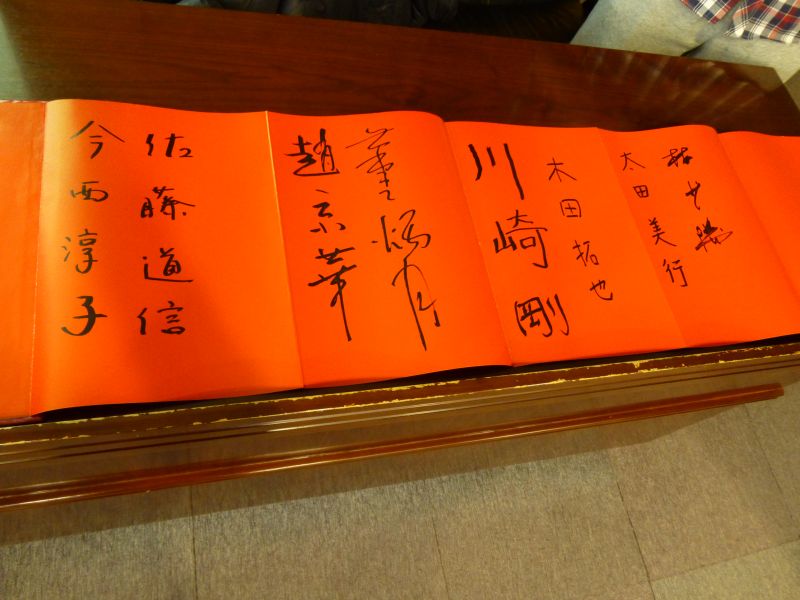 林少陽
太田美行
木田拓也
川崎剛
董炳月
趙京華
佐藤道信
今西淳子